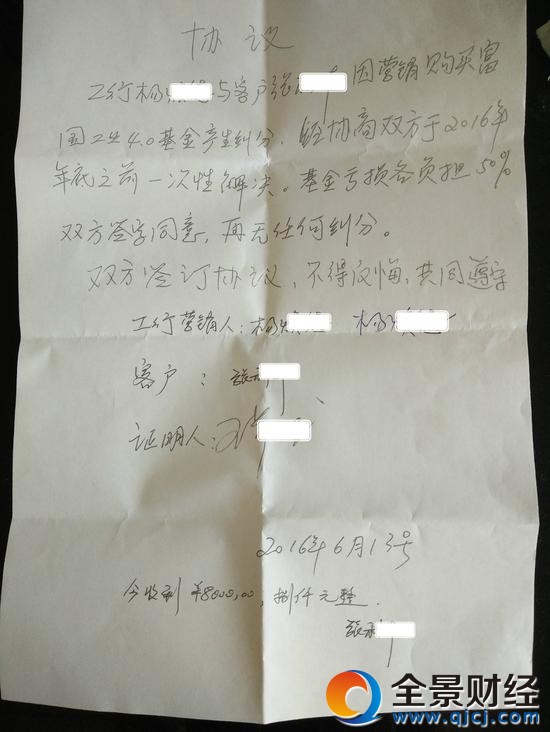 协议
工行杨 与客户张 因营销购买富
国工业4.0基金产生纠分，经协商双方于2016年
年底之前一次性解决。基金亏损各负担50%
双方签字同意，再无任何纠分。
双方签订协议，不得反悔，共同遵守
工行营销人：杨 杨
客户：张
证明人：
2016年6月13号
今收到¥8000,00，捌仟元整.
张
全景财经
www.qjcj.com